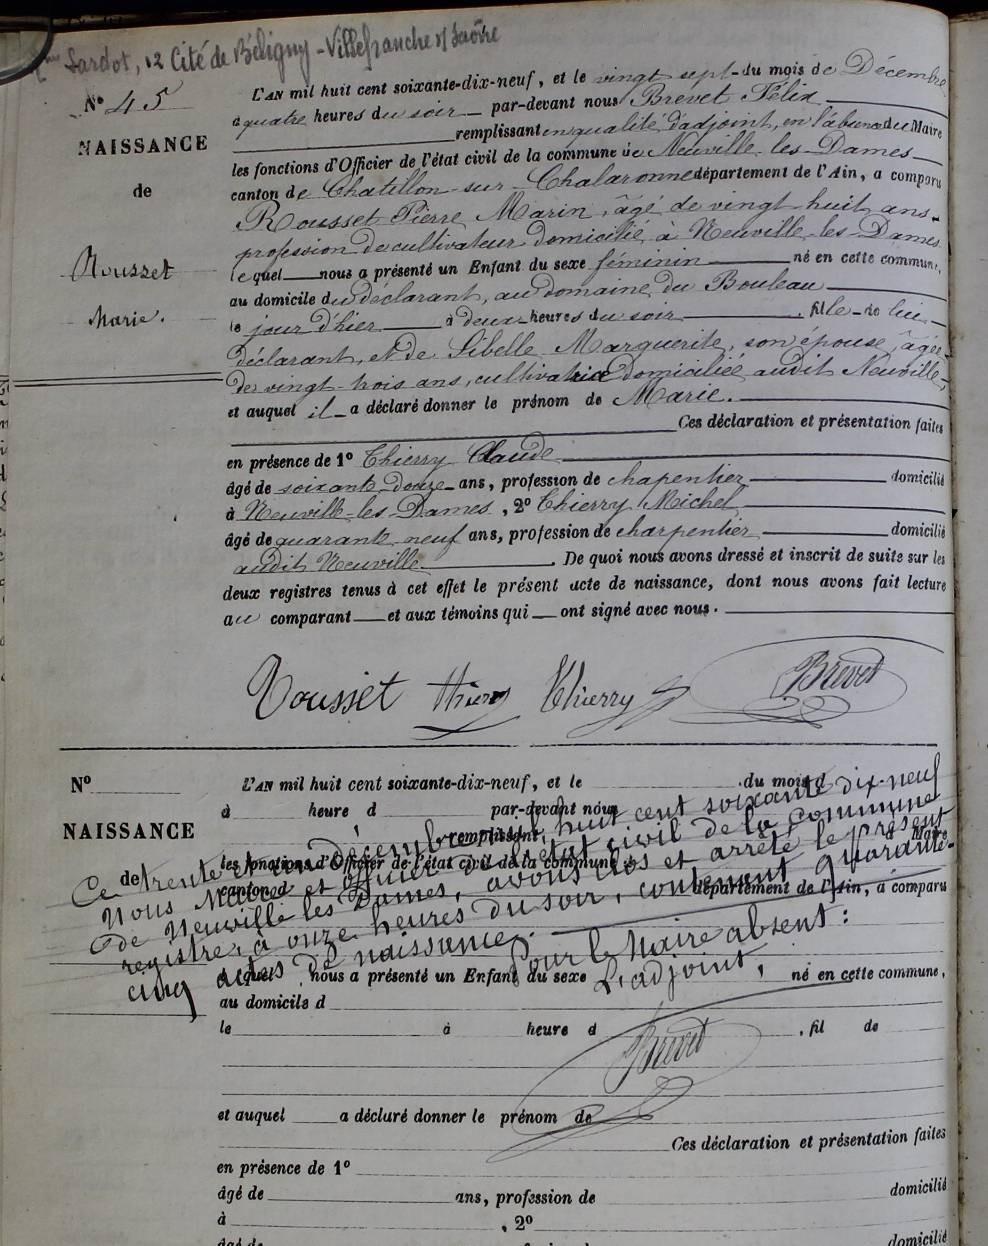 Sardot, 12 Cité de Béligny - Villefranche s/ Saône
N° 45
NAISSANCE
de
Rousset
Marie.
L'AN mil huit cent soixante-dix-neuf, et le vingt sept du mois de Décembre
à quatre heures du soir par-devant nous Brevet Félix
remplissant en qualité d'adjoint, en l'absence du Maire
les fonctions d'Officier de l'état civil de la commune de Neuville-les-Dames
canton de Chatillon-sur-Chalaronne département de l'Ain, a comparu
Rousset Pierre Marin, âgé de vingt-huit ans,
profession de cultivateur domicilié à Neuville-les-Dames
lequel nous a présenté un Enfant du sexe féminin né en cette commune,
au domicile du déclarant, au domaine du Bouleau
le jour d'hier à deux heures du soir, fille de lui
déclarant, et de Sibelle Marguerite, son épouse, âgée
de vingt-trois ans, cultivatrice domiciliée audit Neuville,
et auquel il a déclaré donner le prénom de Marie.
Ces déclaration et présentation faites
en présence de 1° Thierry Claude
âgé de soixante-douze ans, profession de chapentier domicilié
à Neuville-les-Dames, 2° Thierry Michel
âgé de quarante neuf ans, profession de charpentier domicilié
audit Neuville. De quoi nous avons dressé et inscrit de suite sur les
deux registres tenus à cet effet le présent acte de naissance, dont nous avons fait lecture
au comparant et aux témoins qui ont signé avec nous.
Rousset Thierry Thierry Brevet
N°
NAISSANCE
de
L'AN mil huit cent soixante-dix-neuf, et le du mois d
à heure d par-devant nous
remplissant Maire
les fonctions d'Officier de l'état civil de la commune
canton de département de l'Ain, a comparu
Ce trente et un décembre mil huit cent soixante dix-neuf
Nous Maire et officier de l'état civil de la commune
de Neuville les Dames, avons clos et arrêté le présent
registre, à onze heures du soir, contenant quarante-
cinq actes de naissance.
Pour le Maire absent:
L'adjoint,
lequel nous a présenté un Enfant du sexe né en cette commune,
au domicile d
le à heure d , fil de
Brevet
et auquel a déclaré donner le prénom de
Ces déclaration et présentation faites
en présence de 1°
âgé de ans, profession de domicilié
à , 2°
âgé de domicilié